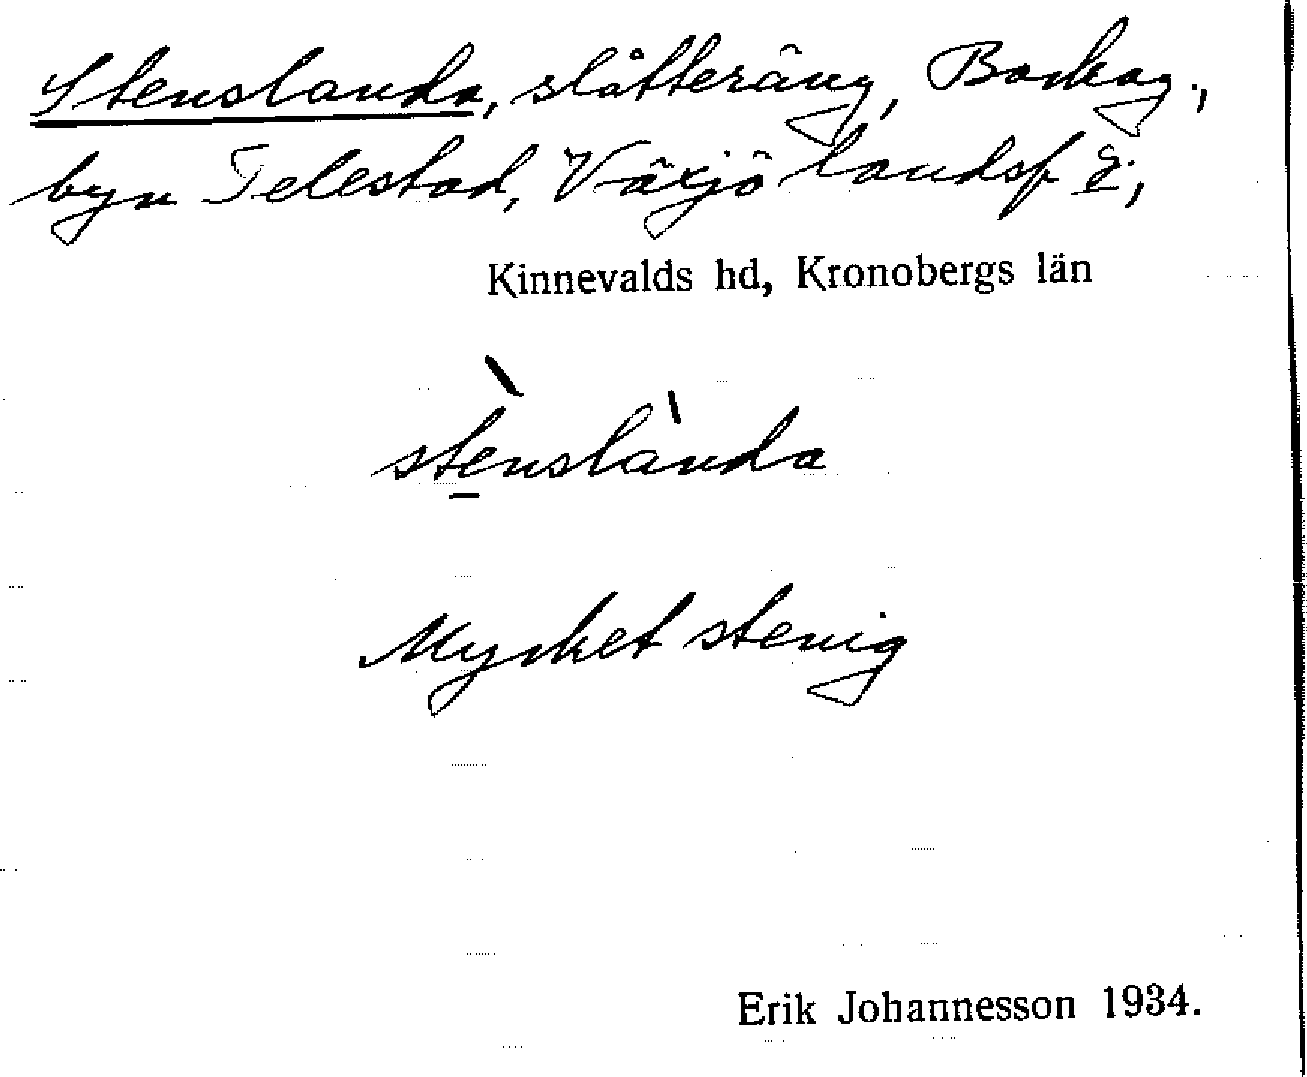 Stenslanda, slåtteräng, Backag.,
byn Telestad, Växjö landsf
Kinnevalds hd, Kronobergs län
stènslànda
Mycket stenig
Erik Johannesson 1934.